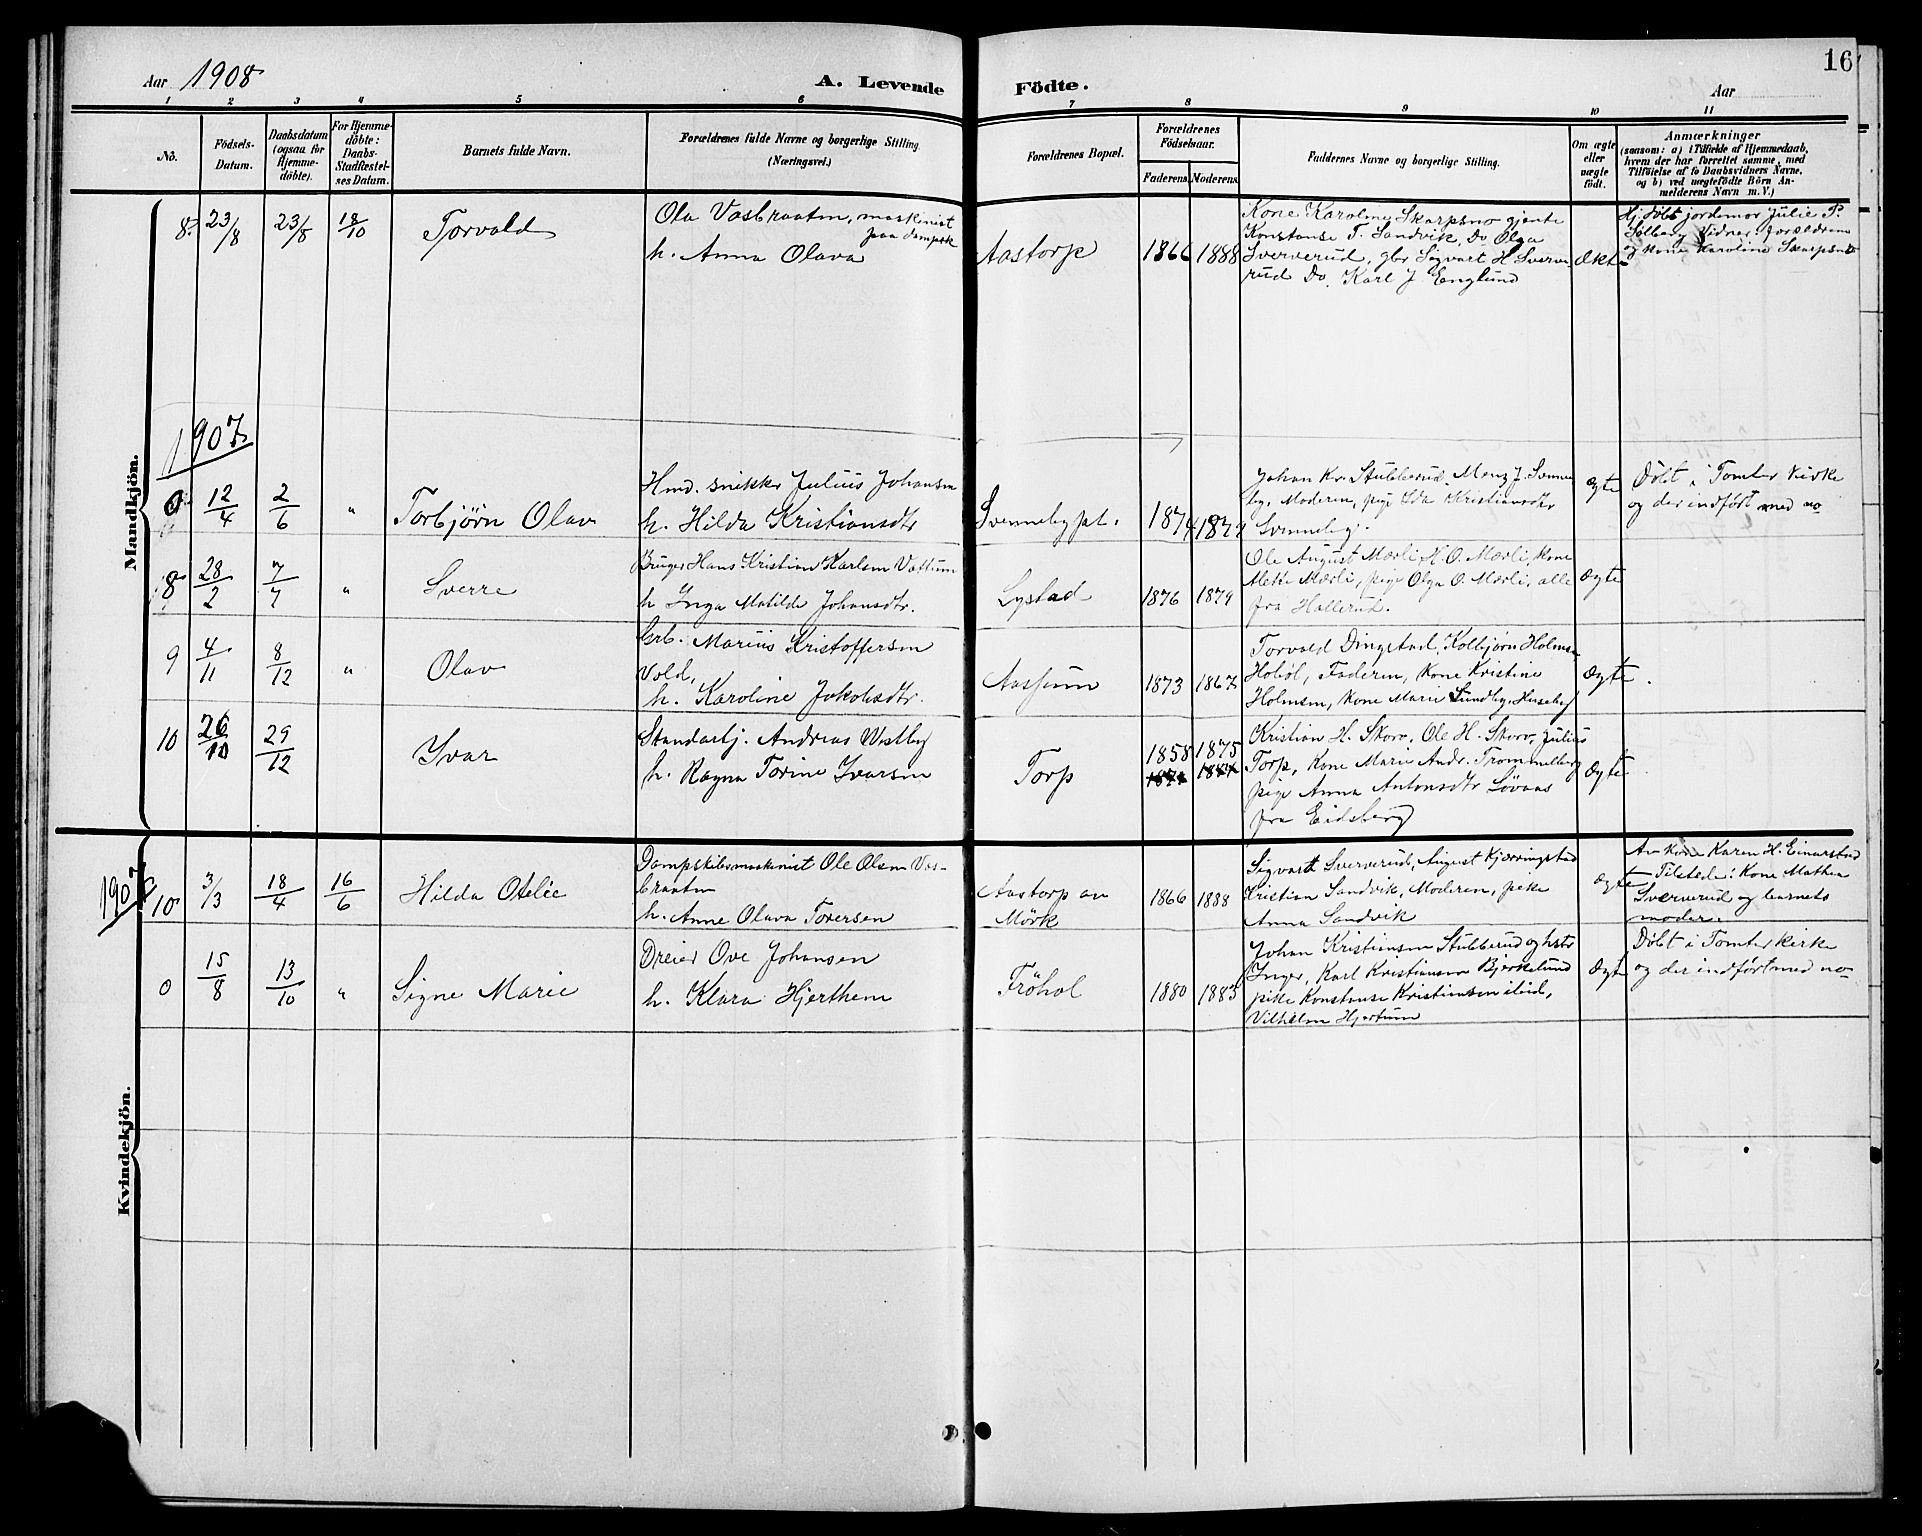 16
Aar 1908 A. Levende Födte. Aar
1 2 3 4 5 6 7 8 9 10 11
No.
Födsels-
Datum.
Daabsdatum
(ogsaa for
Hjemme-
döbte).
For Hjemme-
döbte:
Daabs-
Stadfæstel-
ses Datum.
Barnets fulde Navn.
Forældrenes fulde Navne og borgerlige Stilling.
(Næringsvei.)
Forældrenes Bopæl.
Forældrenes
Födselsaar.
Faderens. Moderens.
Faddernes Navne og borgerlige Stilling.
Om ægte
eller
uægte
födt.
Anmærkninger
(saasom: a) i Tilfælde af Hjemmedaab,
hvem der har forrettet samme, med
Tilföielse af to Daabsvidners Navne,
og b) ved uægtefödte Börn An-
melderens Navn m. V.)
Mandkjön.
8 23/8 23/8 18/10 Torvald
Ola Vasbraaten, maskinist
paa dampsk
h. Anna Olava
Aastorp 1866 1888
Kone Karoline Skarpsno gjente
Konstanse T. Sandvik, Do Olga
Sververud, gbr Sigvart H. Sverve-
rud Do. Karl J. Englund
Ækte
Hj.døbt jordemor Julie P.
Solberg Vidner Forældrene
og kone Karoline Skarpsno
1907
0 12/4 2/6 " Torbjørn Olav
Hmd. snikker Julius Johansen
h. Hilda Kristiansdtr
Svennebypl. 1874 1877
Johan Kr. Stubberud, Menz J. Svenne-
by, Moderen, pige Ida Kristiansdtr
Svenneby.
Ægte
Døbt i Tomter Kirke
og der indført med no
8 28/2 7/7 " Sverre
Bruger Hans Kristian Karlsen Vattum
h Inga Matilde Johansdtr.
Lystad 1876 1879
Ole August Mærli H. O. Mærli, kone
Mette Mærli, pige Olga O. Mærli, alle
fra Hallerud.
Ægte
9 4/11 8/12 " Olav
Grb. Marius Kristoffersen
Vold,
h. Karoline Jakobsdtr.
Aassum 1873 1867
Torvald Dingstad, Kolbjørn Holmsen
Hobøl, Faderen, Kone Kristine
Holmsen, kone Marie Sundby, Huseby
Ægte.
10 26/10 29/12 Ivar
Standartj. Andreas Westby
h. Ragna Torine Ivarsen
Torp 1858 1875
Kristian H. Skorv, Ole H. Skorv, Julius
Torp, Kone Marie Andr. Trommelberg
pige Anna Antonsdtr Løvaas
fra Eidsberg
Ægte
Kvindekjön.
1907
10 3/3 18/4 16/6 Hilda Otelie
Dampskibsmaskinist Ole Olsen Vas-
braaten
h. Anne Olava Toversen
Aastorp av
Mörk
1866 1888
Sigvart Sververud, August Kjærringstad
Kristian Sandvik, Moderen, pike
Anna Sandvik
Ægte
Av Kone Karen H. Einarstad
Tilstede: Kone Mathea
Sververud og barnets
moder.
0 15/8 13/10 " Signe Marie
Dreier Ove Johansen
h. Klara Hjerthem
Fröhol 1880 1883
Johan Kristiansen Stubberud og hstr
Inger, Karl Kristiansen Bjerkelund
pike Konstanse Kristiansen ibid,
Vilhelm Hjertum
Ægte
Døbt i Tomter kirke
og der indført med no